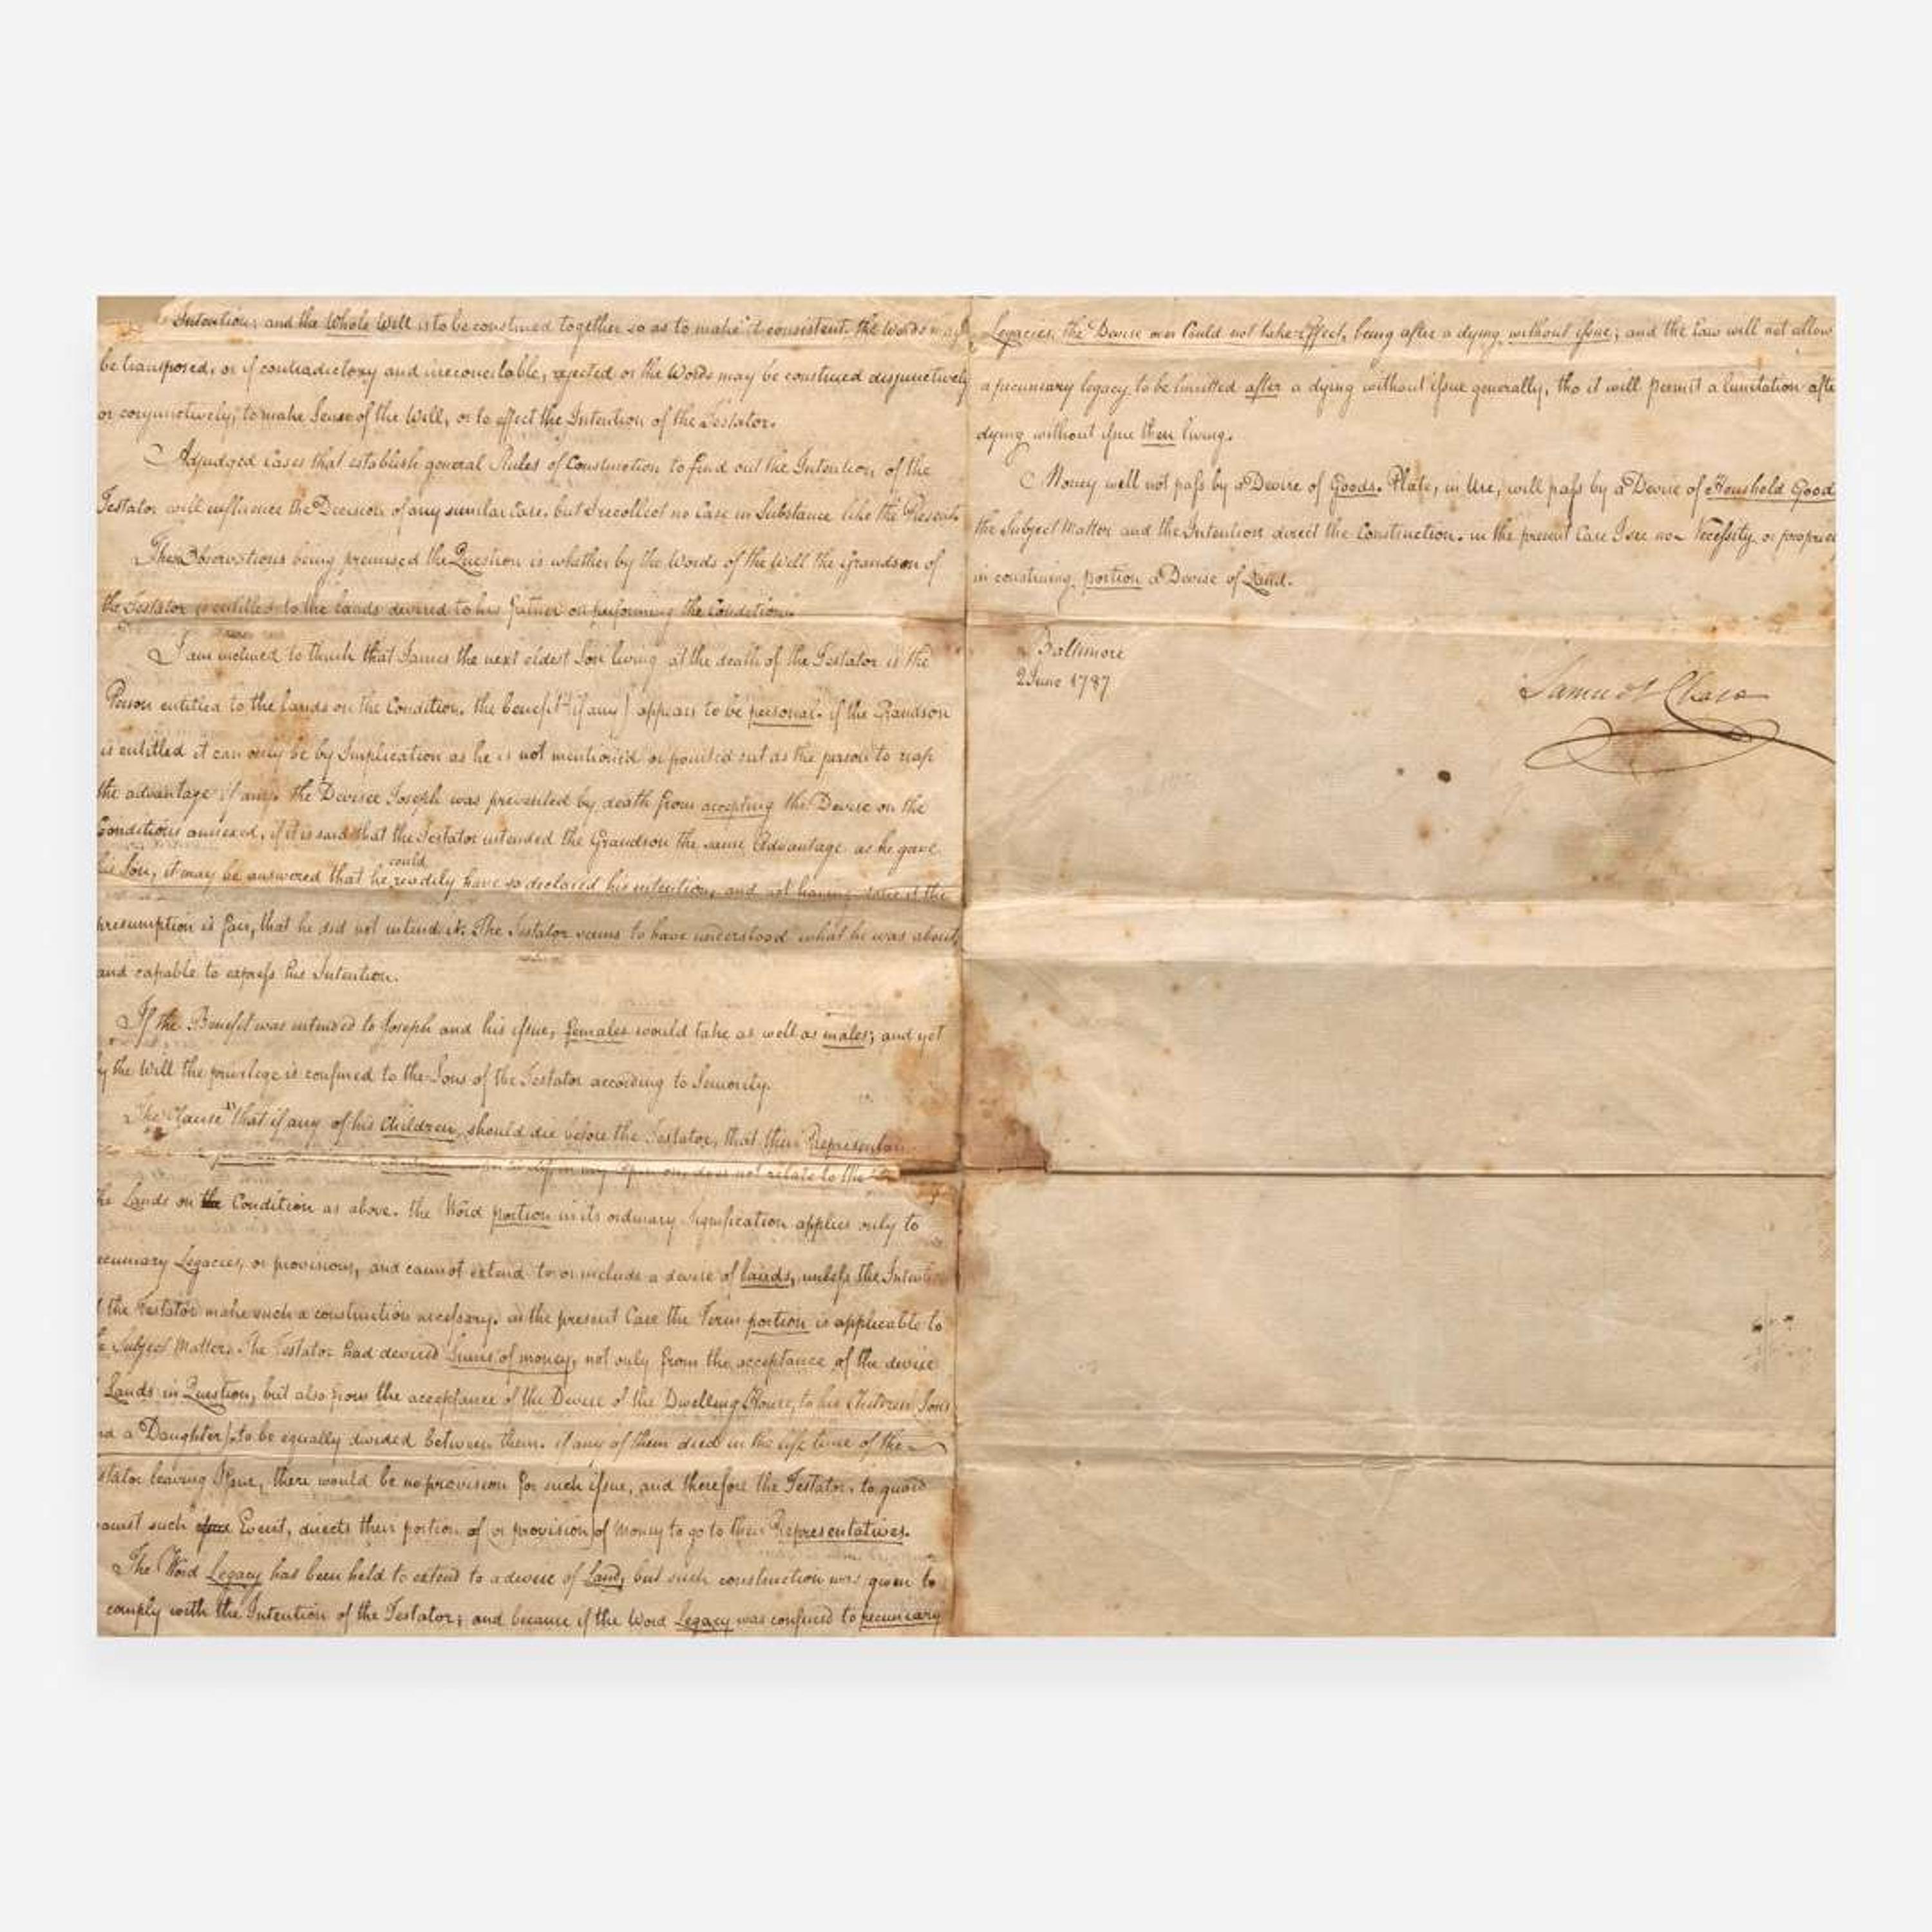 Intention; and the Whole Will is to be construed together so as to make it consistent. the Words may
be transposed, or if contradictory and irreconcilable, rejected or the Words may be construed disjunctively
or conjunctively, to make Sense of the Will, or to effect the Intention of the Testator.
Adjudged Cases that establish general Rules of Construction to find out the Intention of the
Testator will influence the Decision of any similar Case. but I recollect no Case in Substance like the Present.
These Observations being premised the Question is whether by the Words of the Will the Grandson of
the Testator is entitled to the lands devised to his father on performing the Condition.
I am inclined to think that James the next eldest Son living at the death of the Testator is the
Person entitled to the lands on the Condition. the benefit (if any) appears to be personal. if the Grandson
is entitled it can only be by Implication as he is not mentioned or pointed out as the person to reap
the advantage if any. the Devisee Joseph was prevented by death from accepting the Devise on the
Conditions annexed, if it is said that the Testator intended the Grandson the same Advantage as he gave
his Son, it may be answered that he could readily have so declared his intention, and not having done it the
presumption is fair, that he did not intend it. The Testator seems to have understood what he was about,
and capable to express his Intention.
If the Benefit was intended to Joseph and his issue, females would take as well as males; and yet
by the Will the privilege is confined to the Sons of the Testator according to Seniority.
The Clause "that if any of his Children, should die before the Testator, that their Representa
in my opinion, does not relate to the
the Lands on the Condition as above. the Word portion in its ordinary Signification applies only to
ecuniary Legacies, or provisions, and cannot extend to or include a devise of lands, unless the Intenti
the Testator make such a construction necessary. in the present Case the Term portion is applicable to
Subject Matter. The Testator had devised Sums of money, not only from the acceptance of the devise
Lands in Question, but also from the acceptance of the Devise of the Dwelling House, to his Children (Sons
nd a Daughter) to be equally divided between them. if any of them died in the life time of the
stator leaving Issue, there would be no provision for such issue, and therefore the Testator, to guard
ainst such issue Event, directs their portion of (or provision) of Money to go to their Representatives.
The Word Legacy has been held to extend to a devise of Land, but such construction was given to
comply with the Intention of the Testator; and because if the Word Legacy was confined to pecuniary
Legacies, the Devise over Could not take Effect, being after a dying without issue; and the Law will not allow
a pecuniary legacy to be limitted after a dying without issue generally, tho it will permit a limitation afte
dying without issue then living.
Money will not pass by a Devise of Goods. Plate, in Use, will pass by a Devise of Houshold Good
the Subject Matter and the Intention direct the Construction. in the present Case I see no Necessity or propriet
in construing portion a Devise of Land.
Baltimore
2 June 1787
Samuel Chase